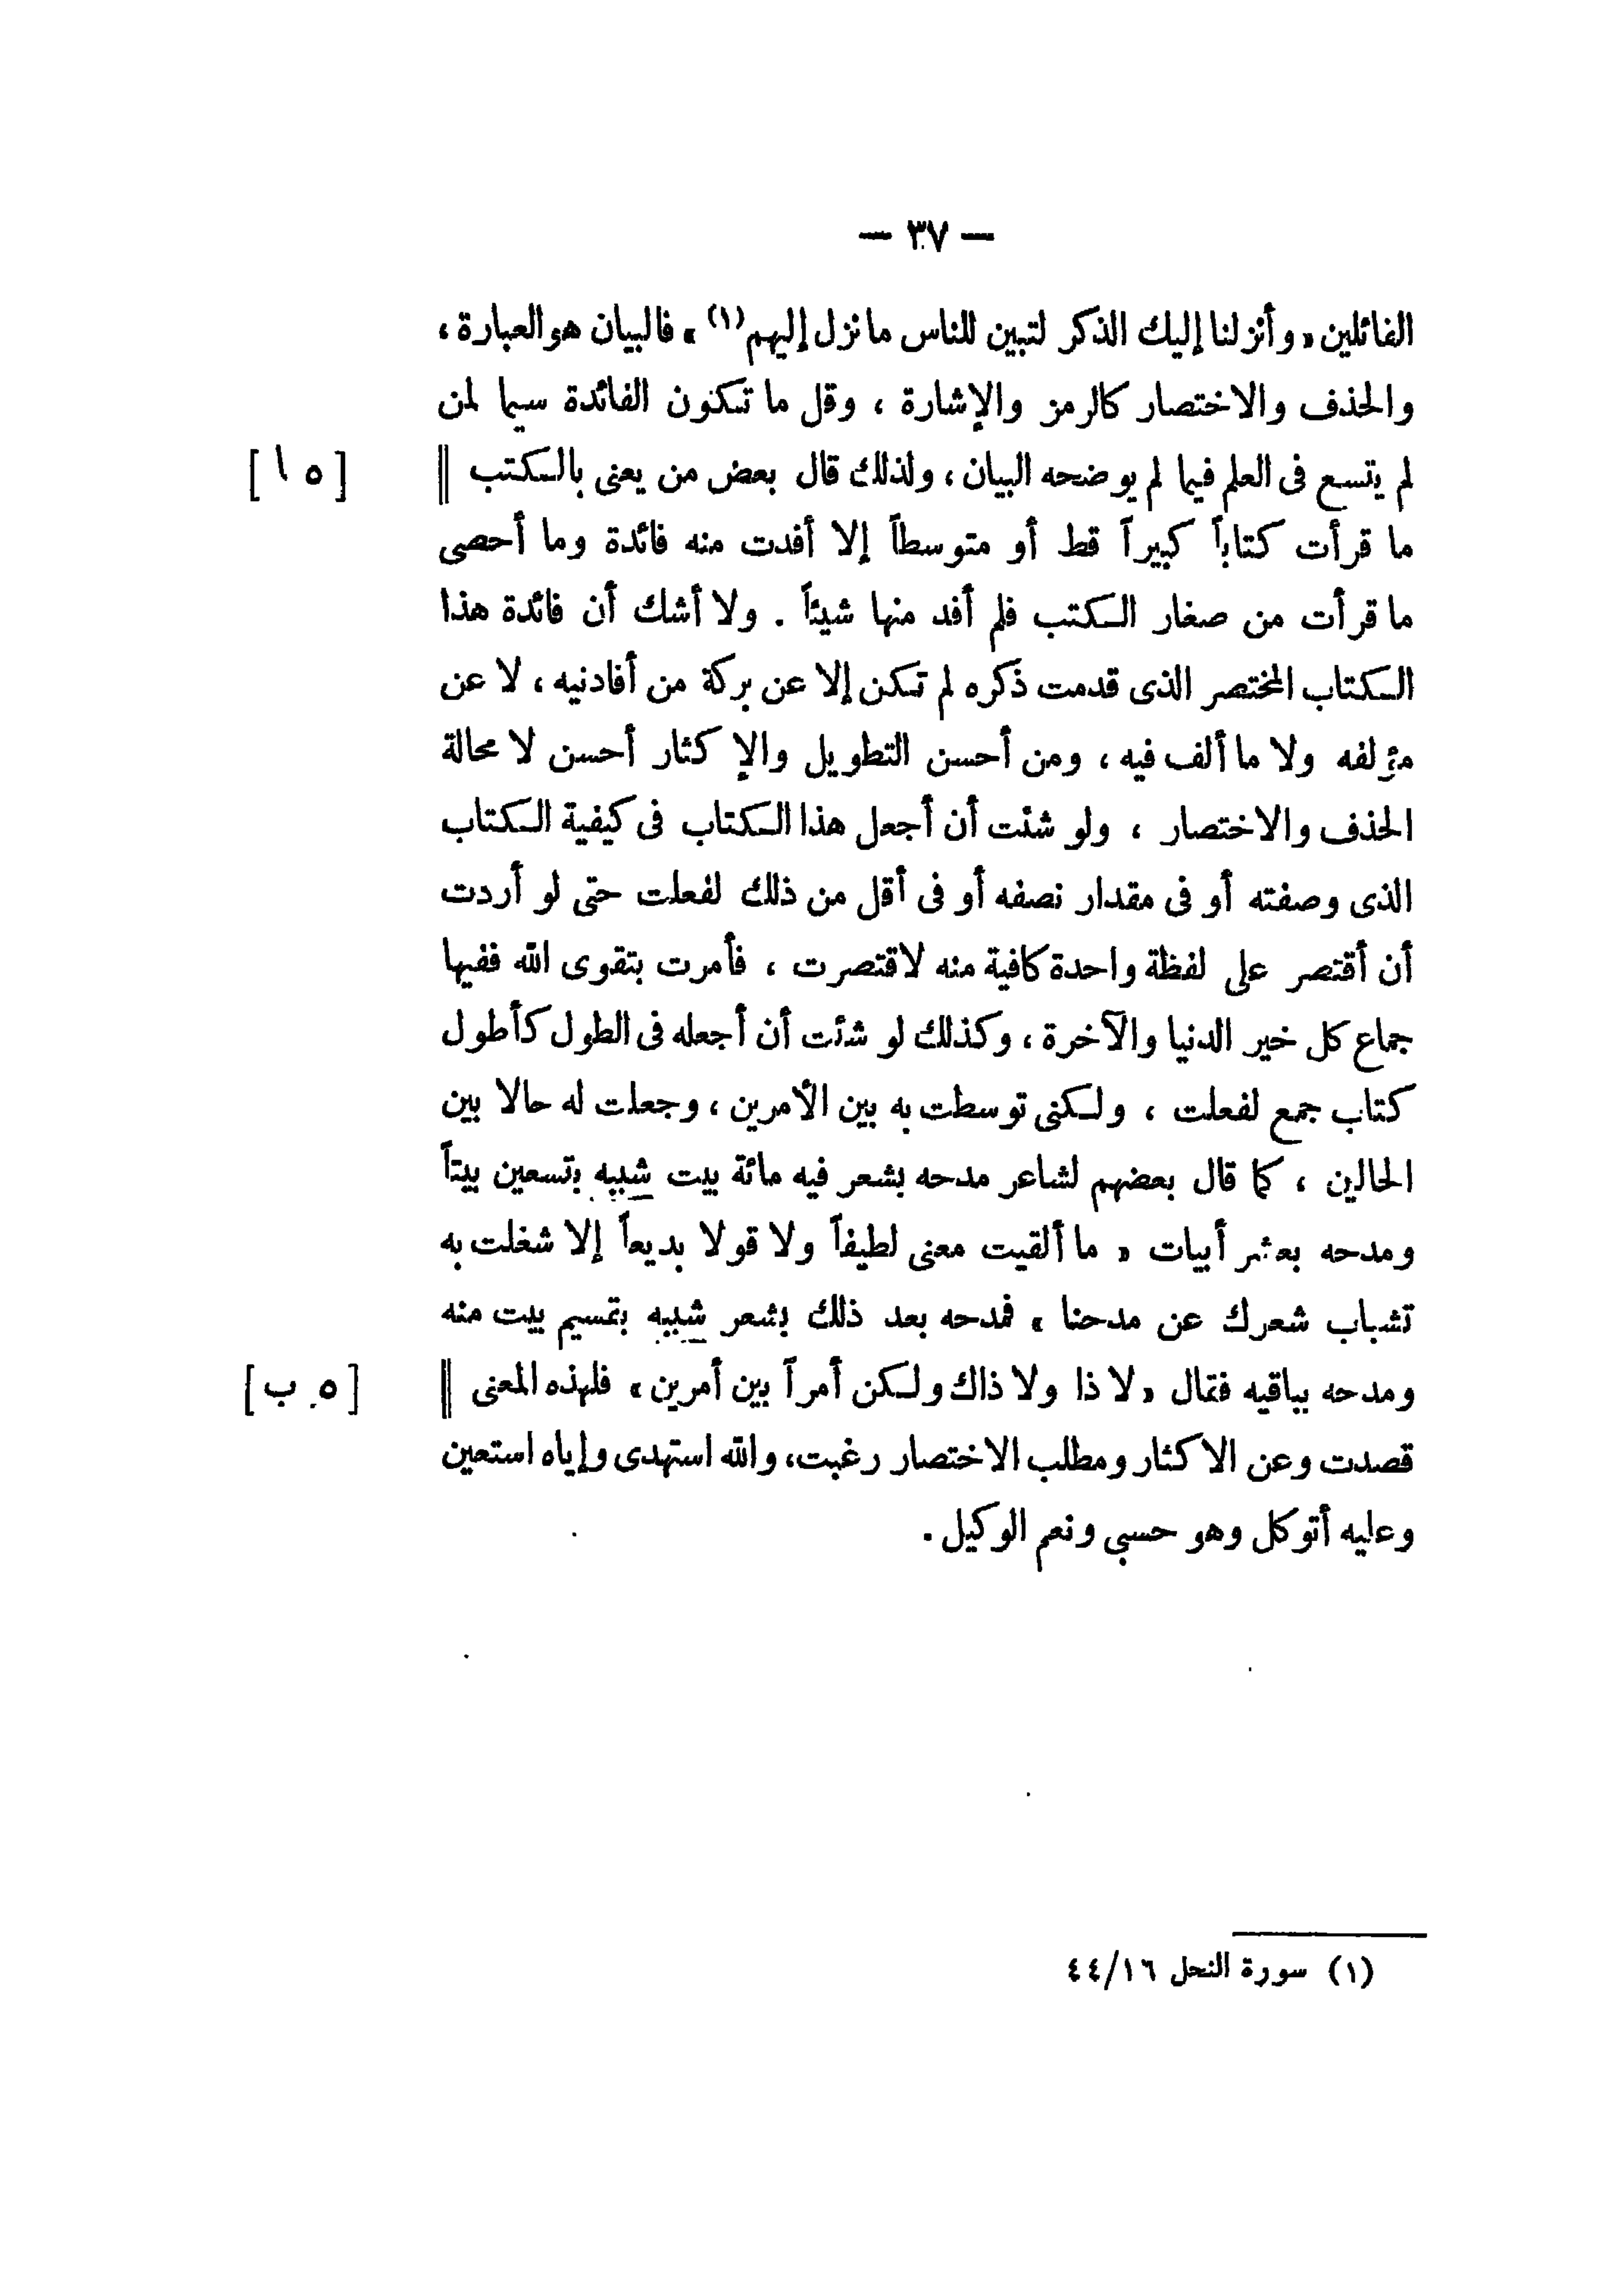 — ٣٧ —
القائلين « وأنزلنا إليك الذكر لتبين للناس ما نزل إليهم(١) » فالبيان هو العبارة ،
والحذف والاختصار كالرمز والإشارة ، وقل ما تكون الفائدة سيما لمن
لم يتسع فى العلم فيما لم يوضحه البيان ، ولذلك قال بعض من يعنى بالكتب || [ ٥ ا ]
ما قرأت كتاباً كبيراً قط أو متوسطاً إلا أفدت منه فائدة وما أحصى
ما قرأت من صغار الكتب فلم أفد منها شيئاً . ولا أشك أن فائدة هذا
الكتاب المختصر الذى قدمت ذكره لم تكن إلا عن بركة من أفادنيه ، لا عن
مؤلفه ولا ما ألف فيه ، ومن أحسن التطويل والإكثار أحسن لا محالة
الحذف والاختصار ، ولو شئت أن أجعل هذا الكتاب فى كيفية الكتاب
الذى وصفته أو فى مقدار نصفه أو فى أقل من ذلك لفعلت حتى لو أردت
أن أقتصر على لفظة واحدة كافية منه لاقتصرت ، فأمرت بتقوى الله ففيها
جماع كل خير الدنيا والآخرة ، وكذلك لو شئت أن أجعله فى الطول كأطول
كتاب جمع لفعلت ، ولكنى توسطت به بين الأمرين ، وجعلت له حالا بين
الحالين ، كما قال بعضهم لشاعر مدحه بشعر فيه مائة بيت شببه بتسعين بيتاً
ومدحه بعشر أبيات « ما ألقيت معنى لطيفاً ولا قولا بديعاً إلا شغلت به
تشباب شعرك عن مدحنا » فمدحه بعد ذلك بشعر شببه بقسيم بيت منه
ومدحه بباقيه فقال « لا ذا ولا ذاك ولكن أمراً بين أمرين » فلهذه المعنى || [ ٥ ب ]
قصدت وعن الاكثار ومطلب الاختصار رغبت، والله استهدى وإياه استعين
وعليه أتوكل وهو حسبى ونعم الوكيل .
(١) سورة النحل ٤٤/١٦